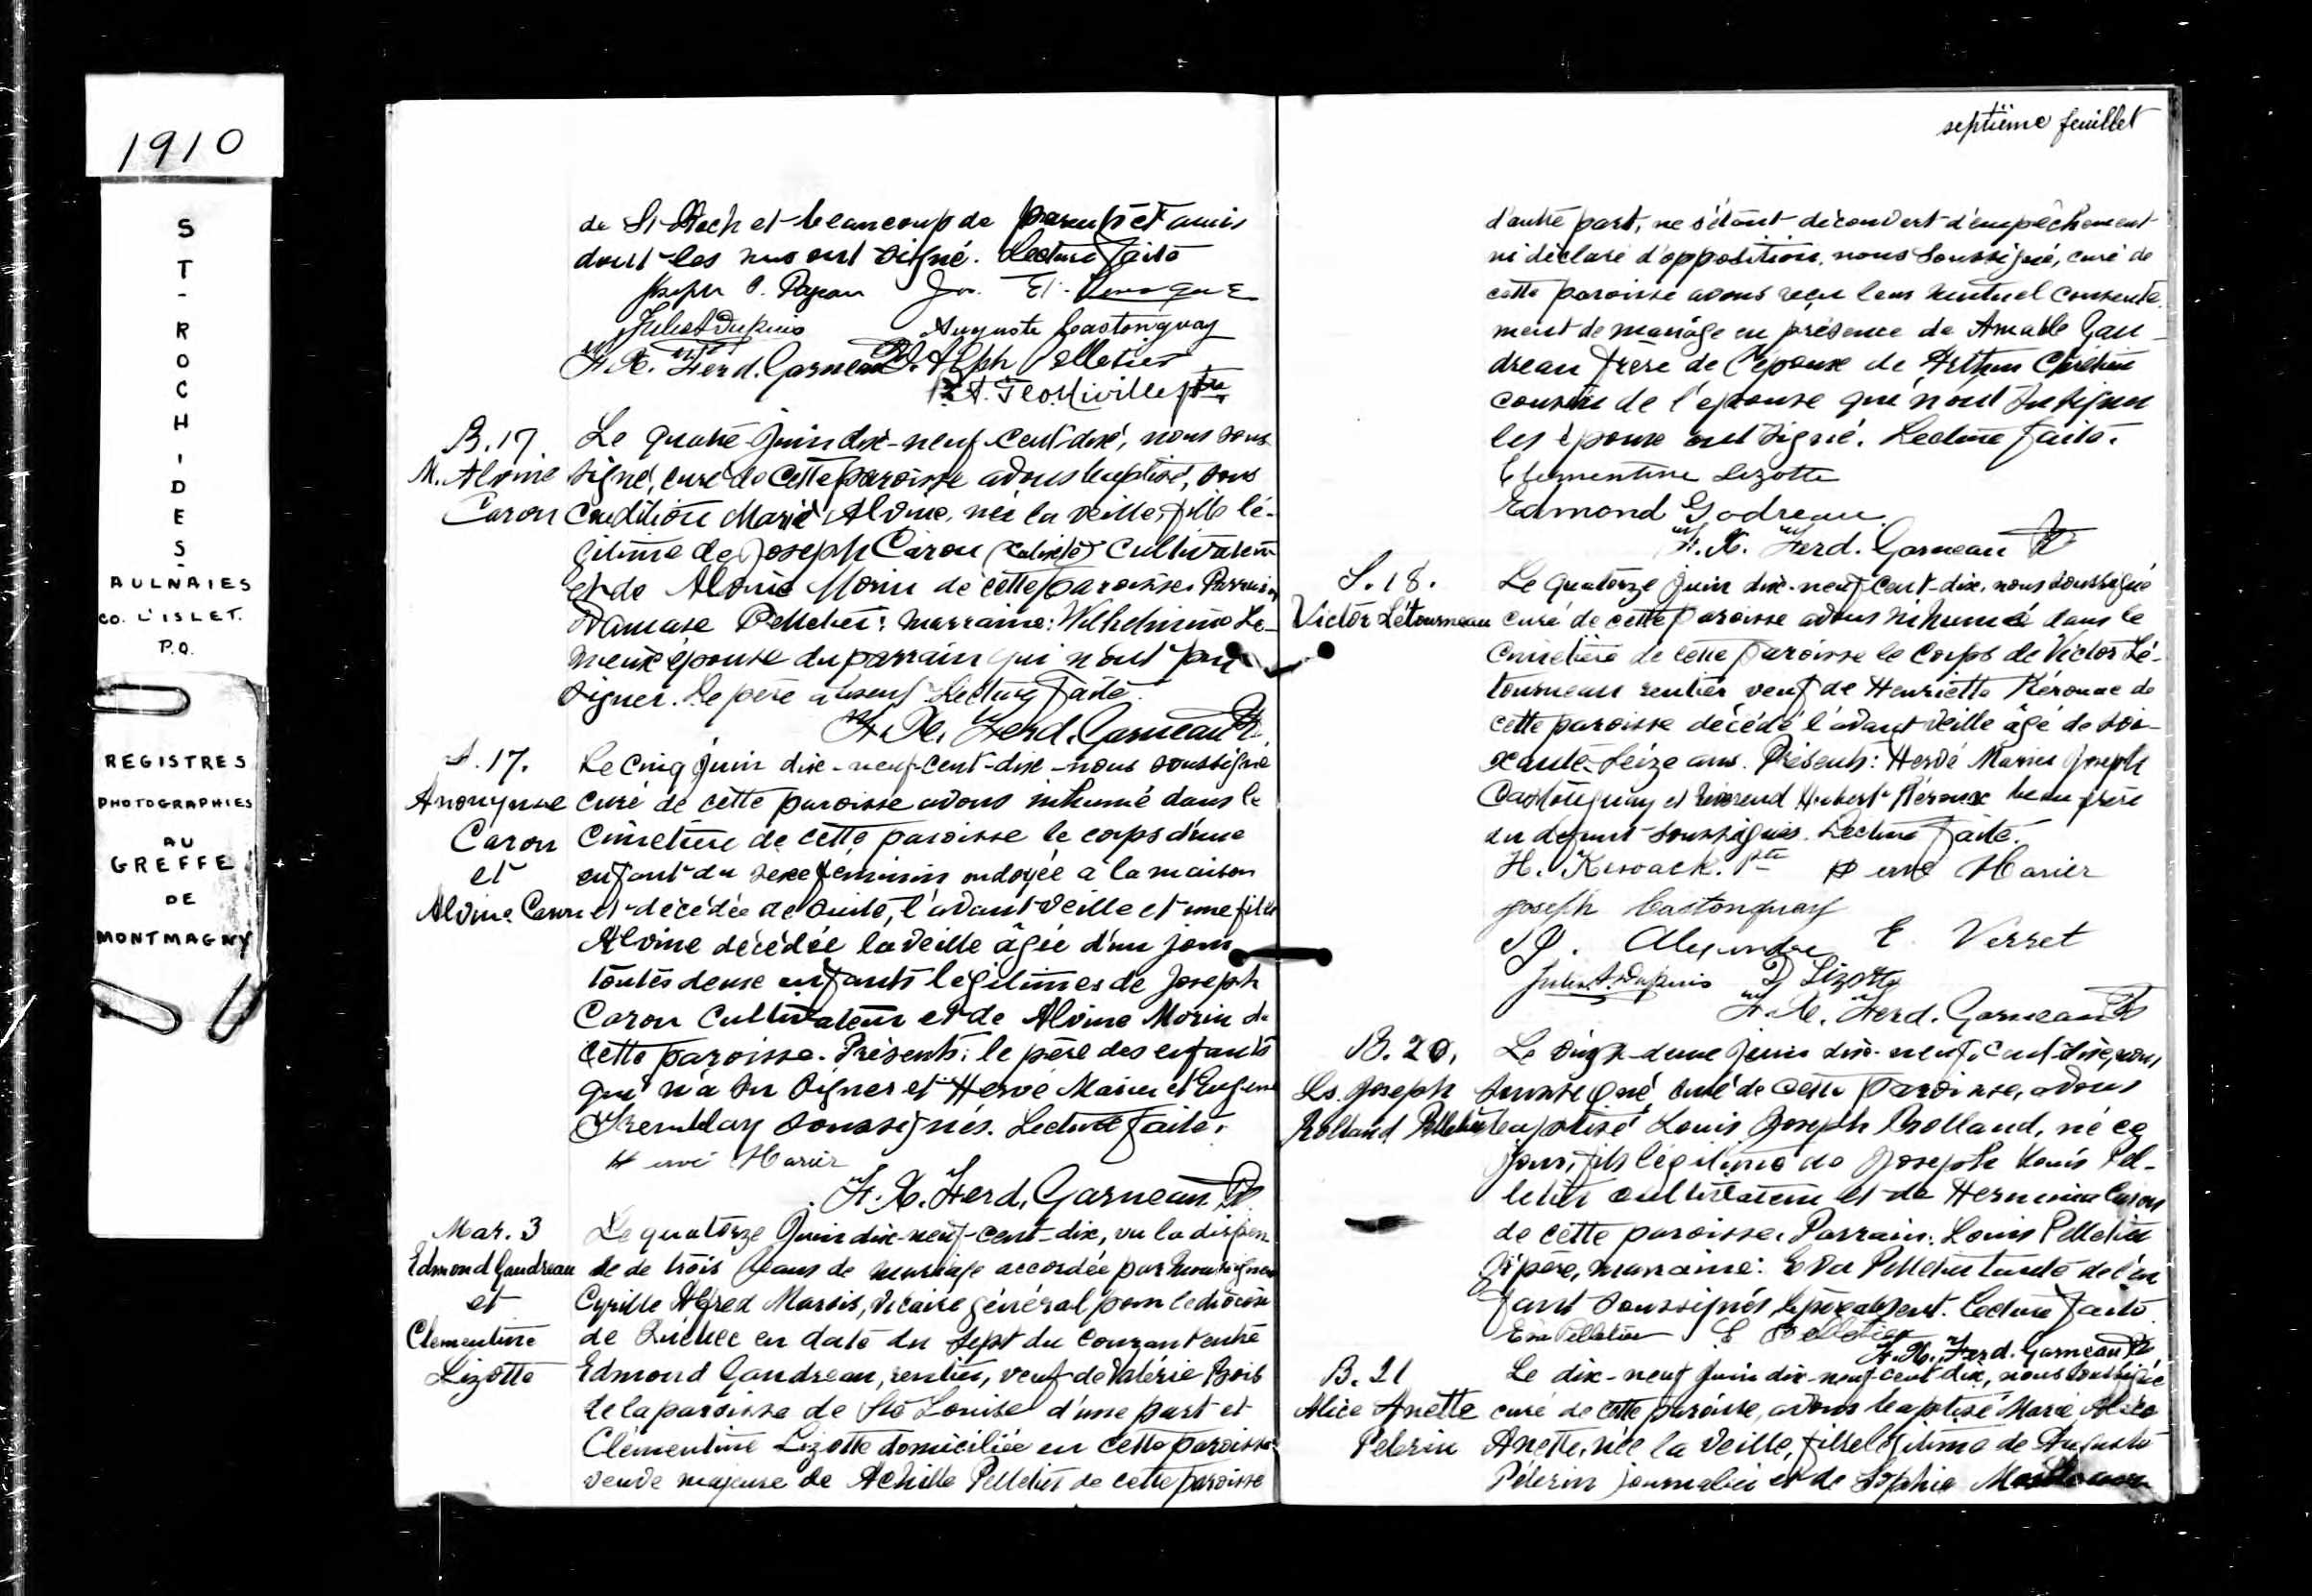 1910
ST-ROCH-DES-
AULNAIES
CO. L'ISLET.
P.Q.
REGISTRES
PHOTOGRAPHIES
AU
GREFFE
DE
MONTMAGNY
de St-Roch et beaucoup de parents et amis
dont les uns ont signé. Lecture faite
Auguste Castonguay
F. X. Ferd. Garneau Alph Pelletier
B.17
M. Alvine
Caron
Le quatre Juin dix-neuf-cent-dix, nous sous-
signé, curé de cette paroisse avons baptisé, sous
condition Marie Alvine, née la veille, fille lé-
gitime de Joseph Caron cultivateur
et de Alvine Morin de cette paroisse. Parrain
Damase Pelletier: marraine: Wilhelmine Le-
mieux épouse du parrain qui n'ont pu
signer. Le père absent Lecture faite.
F. X. Ferd. Garneau
S.17.
Anonyme
Caron
et
Alvine Caron
Le cinq Juin dix-neuf-cent-dix-nous soussigné
curé de cette paroisse avons inhumé dans le
cimetière de cette paroisse le corps d'une
enfant du sexe féminin ondoyée à la maison
et décédée de suite, l'avant veille et une fille
Alvine décédée la veille âgée d'un jour
toutes deux enfants légitimes de Joseph
Caron cultivateur et de Alvine Morin de
cette paroisse. Présents: le père des enfants
qui n'a su signer et Hervé Marier et Eugene
Tremblay soussignés. Lecture faite.
Hervé Marier
F. X. Ferd. Garneau
Mar. 3
Edmond Gaudreau
et
Clementine
Lizotte
Le quatorze Juin dix-neuf-cent-dix, vu la dispen
se de trois bans de mariage accordée par Monseigneur
Cyrille Alfred Marois, vicaire général pour le diocèse
de Québec en date du sept du courant entre
Edmond Gaudreau, rentier, veuf de Valérie Bois
de la paroisse de Ste Louise d'une part et
Clémentine Lizotte domiciliée en cette paroisse
veuve majeure de Achille Pelletier de cette paroisse
septième feuillet
d'autre part, ne s'étant découvert d'empêchement
ni déclaré d'opposition, nous soussigné, curé de
cette paroisse avons reçu leur mutuel consente
ment de mariage en présence de Amable Gau
dreau frère de l'époux de Arthur Chrétien
cousin de l'épouse qui n'ont su signer
les époux ont signé. Lecture faite.
Clementine Lizotte
Edmond Godreau
F. X. Ferd. Garneau
S.18.
Victor Létourneau
Le quatorze Juin dix-neuf-cent-dix, nous soussigné
curé de cette paroisse avons inhumé dans le
cimetière de cette paroisse le corps de Victor Lé-
tourneau rentier veuf de Henriette Kérouac de
cette paroisse décédé l'avant veille âgé de soi-
xante-seize ans. Présents: Hervé Marier Joseph
Castonguay et Révérend Hubert beau frère
du défunt soussignés. Lecture faite.
H. Kirouack. Ptre Hervé Marier
Joseph Castonguay
Alexandre E. Verret
Jules A. Dupuis D Lizotte
F. X. Ferd. Garneau
B. 20.
Ls. Joseph
Rolland Pelletier
Le vingt-deux Juin dix-neuf-cent-dix, nous
soussigné, curé de cette paroisse, avons
baptisé Louis Joseph Rolland, né ce
jour, fils légitime de Joseph Louis Pel-
letier cultivateur et de Herminia Caron
de cette paroisse. Parrain: Louis Pelletier
G'père, marraine: Eva Pelletier tante de l'en
fant soussignés le père absent. Lecture faite
Eva Pelletier L Pelletier
F. X. Ferd. Garneau
B. 21
Alice Anette
Pelerin
Le dix-neuf Juin dix-neuf-cent dix, nous soussigné
curé de cette paroisse, avons baptisé Marie Alice
Anette, née la veille, fille légitime de Auguste
Pélerin journalier et de Sophie